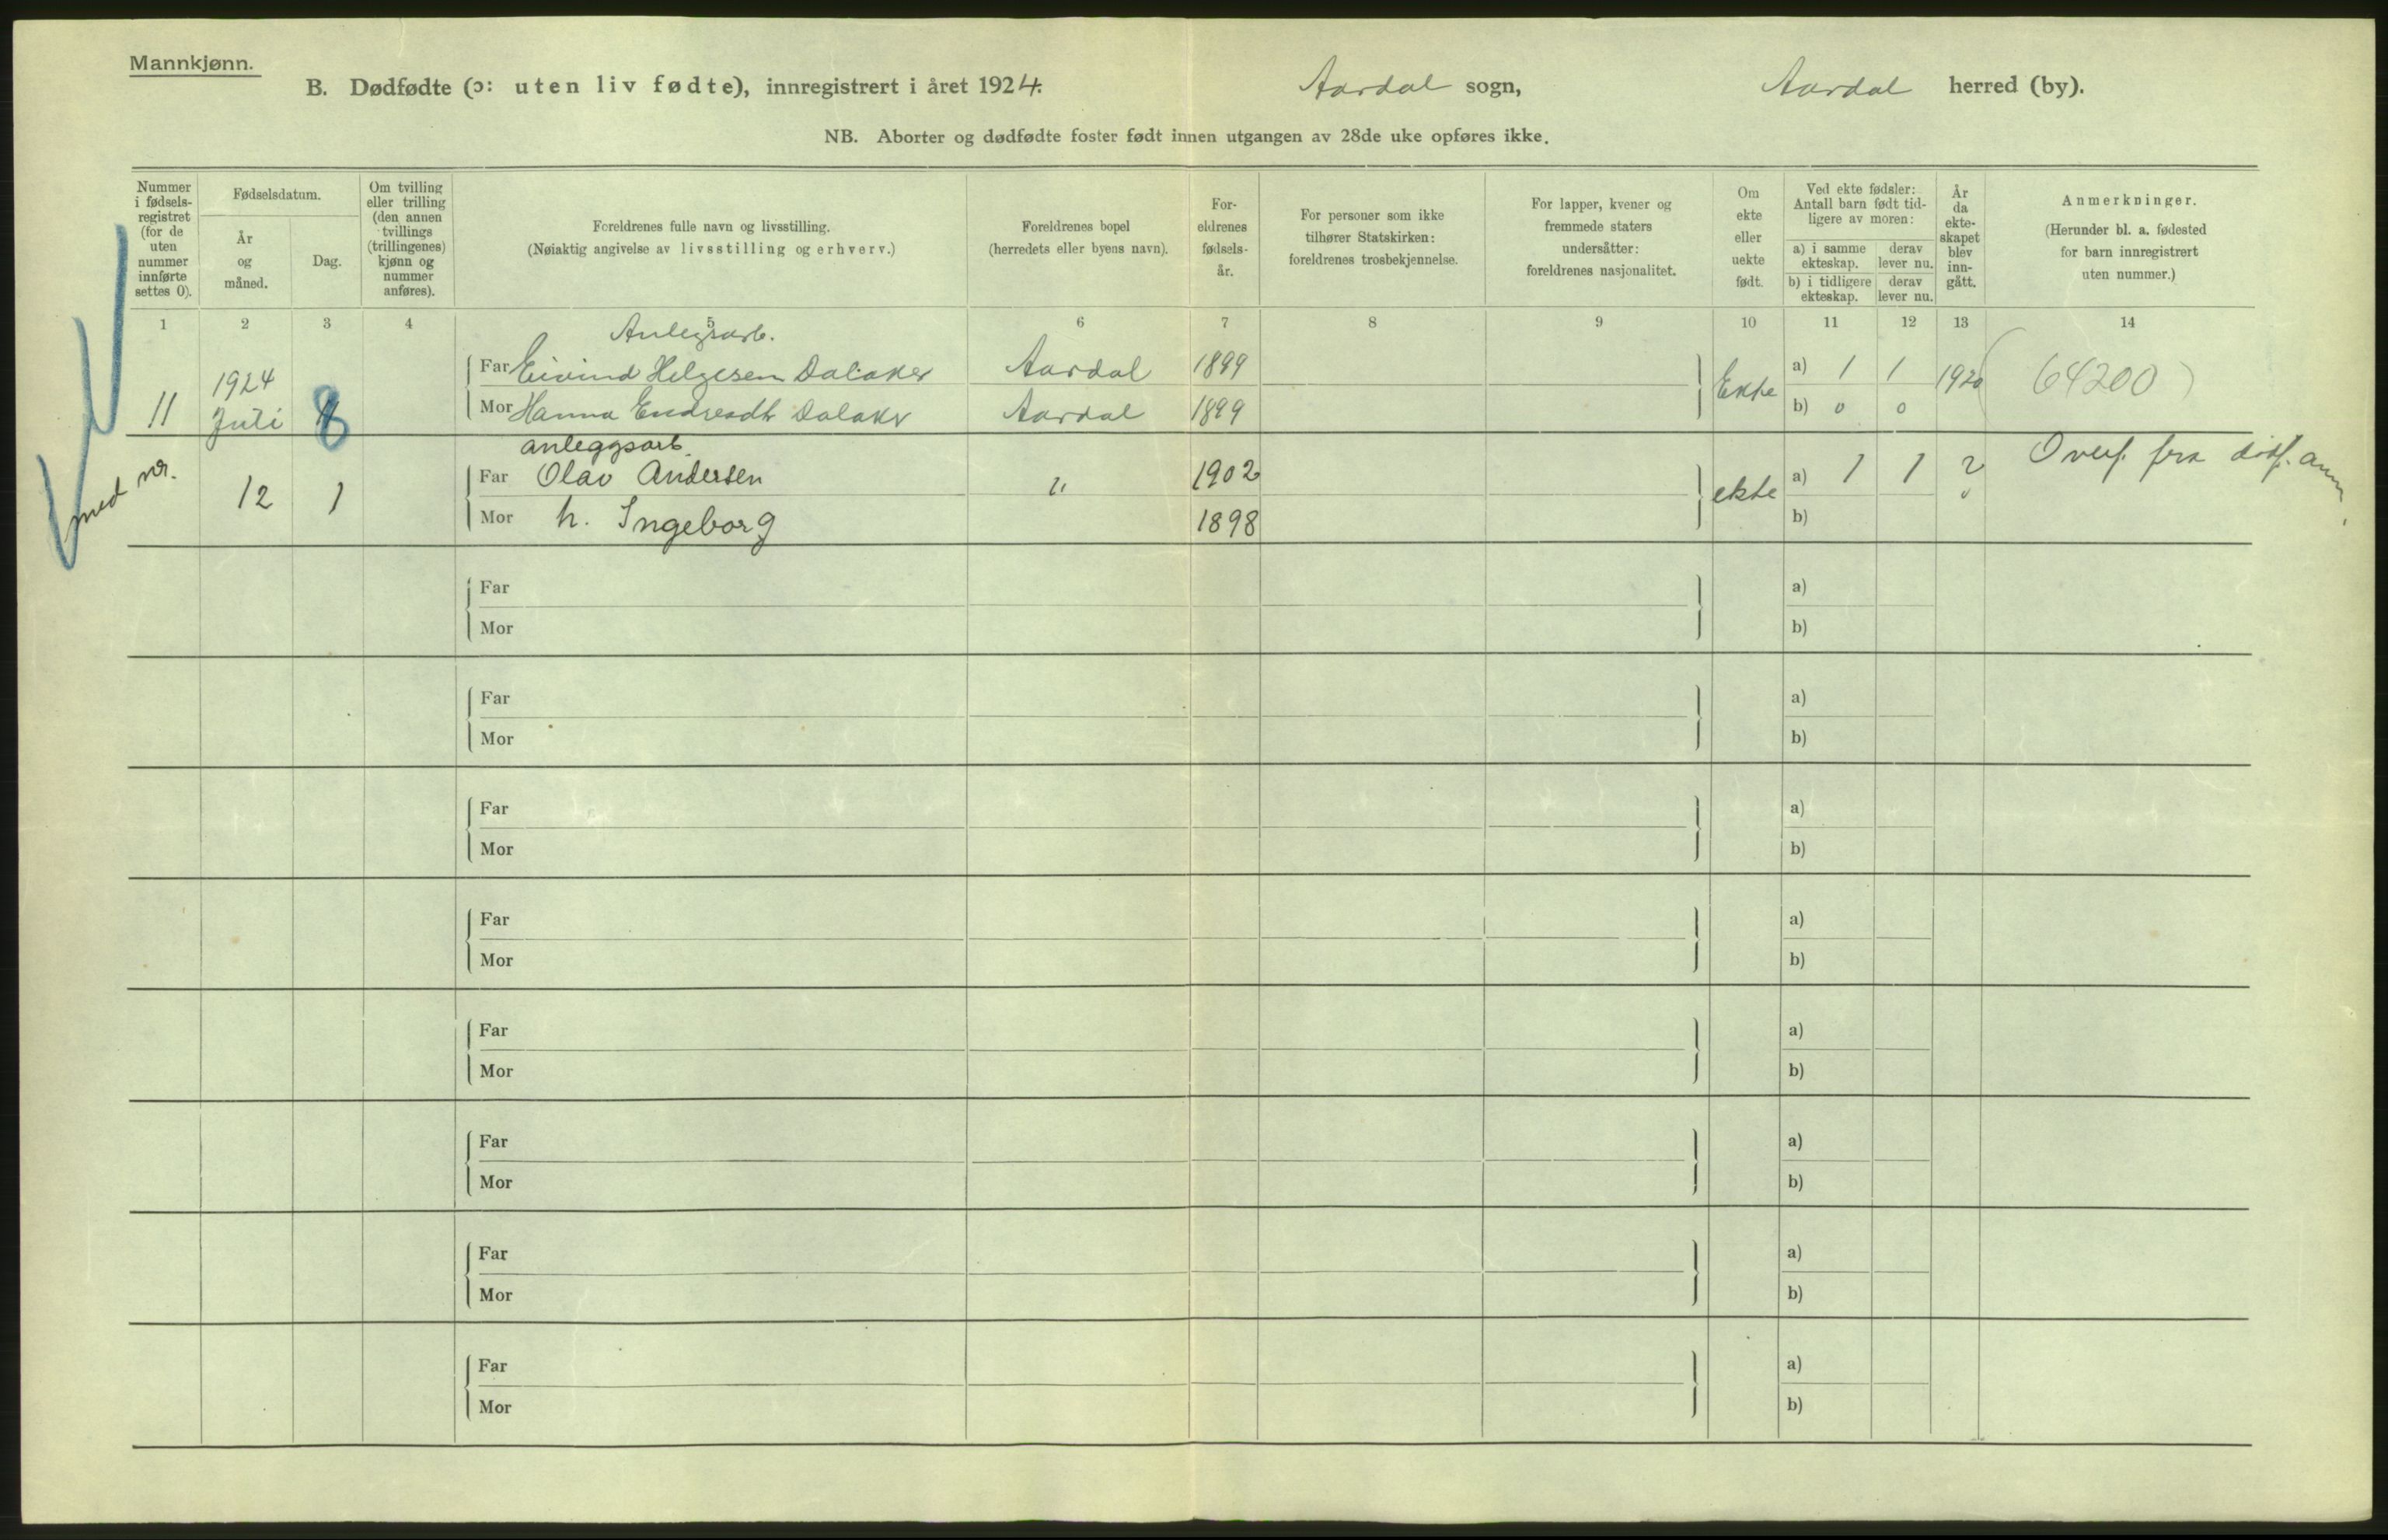 Mannkjønn.
B. Dødfødte (ɔ: uten liv fødte), innregistrert i året 1924. Aardal sogn, Aardal herred (by).
NB. Aborter og dødfødte foster født innen utgangen av 28de uke opføres ikke.
Nummer i fødsels-registret (for de uten nummer innførte settes 0).
Fødselsdatum.
År og måned.
Dag.
Om tvilling eller trilling (den annen tvillings (trillingenes) kjønn og nummer anføres).
Foreldrenes fulle navn og livsstilling.
(Nøiaktig angivelse av livsstilling og erhverv.)
Foreldrenes bopel
(herredets eller byens navn).
For-eldrenes fødsels-år.
For personer som ikke tilhører Statskirken: foreldrenes trosbekjennelse.
For lapper, kvener og fremmede staters undersåtter: foreldrenes nasjonalitet.
Om ekte eller uekte født.
Ved ekte fødsler: Antall barn født tid-ligere av moren:
a) i samme ekteskap. derav lever nu.
b) i tidligere ekteskap. derav lever nu.
År da ekte-skapet blev inn-gått.
Anmerkninger.
(Herunder bl. a. fødested for barn innregistrert uten nummer.)
1 2 3 4 5 6 7 8 9 10 11 12 13 14
Anlegsarb.
1924 Far Eivind Helgesen Dalaker Aardal 1899 a) 1 1 1920 (64200)
11 Juli 8 Mor Hanna Endresdtr Dalaker Aardal 1899 Ekte b) 0 0
anleggsarb.
med nr. Far Olav Andersen " 1902 a) 1 1 ? Overf. fra dødf. anm.
12 1 Mor h. Ingeborg 1898 ekte b)
Far a)
Mor b)
Far a)
Mor b)
Far a)
Mor b)
Far a)
Mor b)
Far a)
Mor b)
Far a)
Mor b)
Far a)
Mor b)
Far a)
Mor b)